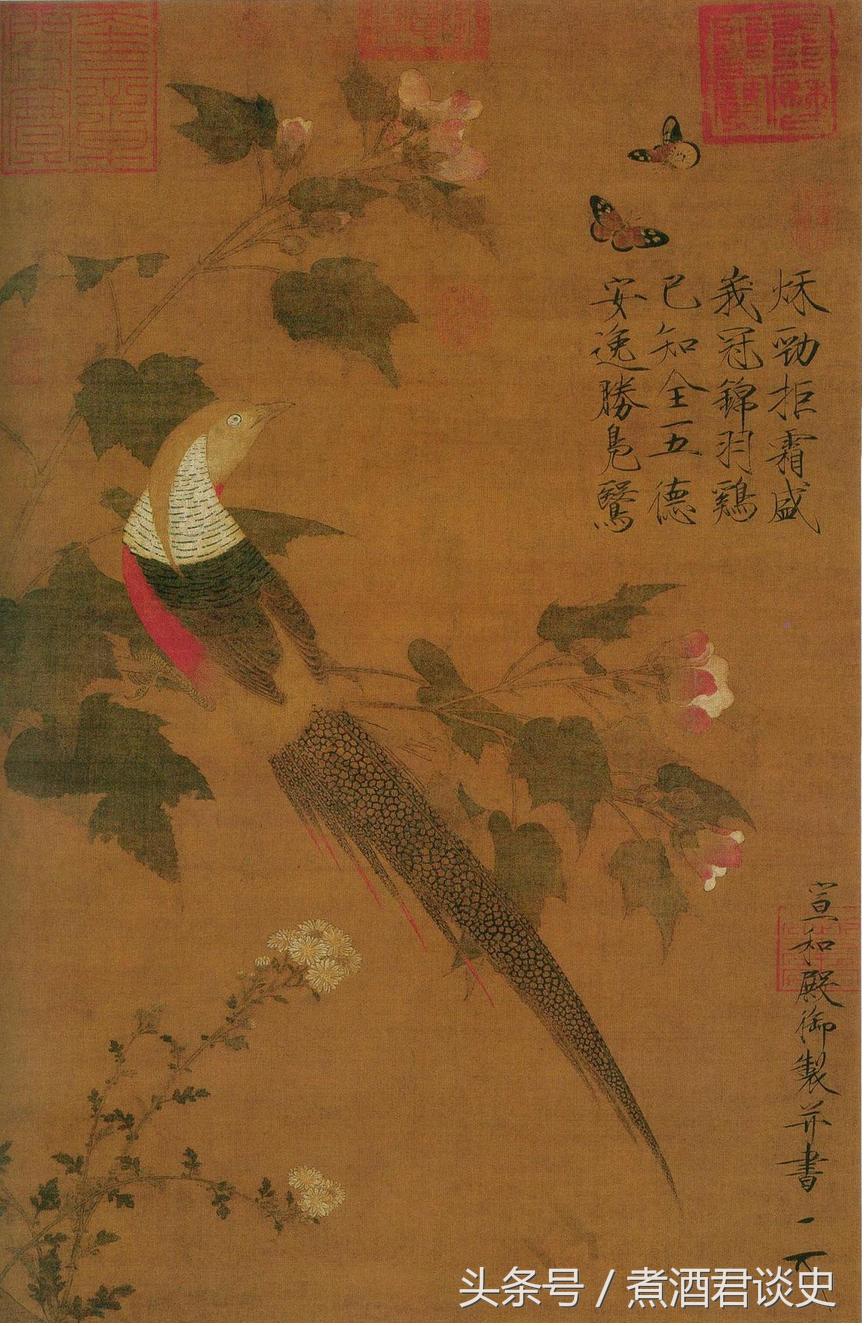 秋勁拒霜盛
峩冠錦羽鷄
已知全五德
安逸勝鳧鷖
宣和殿御製并書
头条号 / 煮酒君谈史